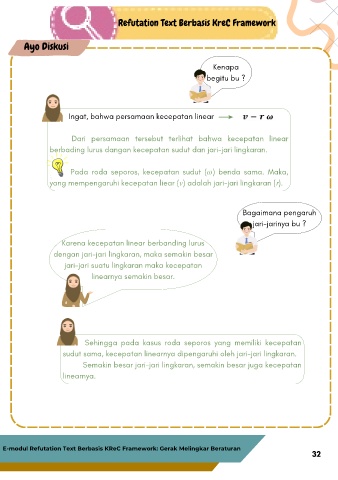 Refutation Text Berbasis KreC Framework
Ayo Diskusi
Kenapa
begiitu bu ?
Ingat, bahwa persamaan kecepatan linear → v = r ω
Dari persamaan tersebut terlihat bahwa kecepatan linear
berbading lurus dangan kecepatan sudut dan jari-jari lingkaran.
Pada roda seporos, kecepatan sudut (ω) benda sama. Maka,
yang mempengaruhi kecepatan liear (v) adalah jari-jari lingkaran (r).
Bagaimana pengaruh
jari-jarinya bu ?
Karena kecepatan linear berbanding lurus
dengan jari-jari lingkaran, maka semakin besar
jari-jari suatu lingkaran maka kecepatan
linearnya semakin besar.
Sehingga pada kasus roda seporos yang memiliki kecepatan
sudut sama, kecepatan linearnya dipengaruhi oleh jari-jari lingkaran.
Semakin besar jari-jari lingkaran, semakin besar juga kecepatan
linearnya.
E-modul Refutation Text Berbasis KReC Framework: Gerak Melingkar Beraturan
32